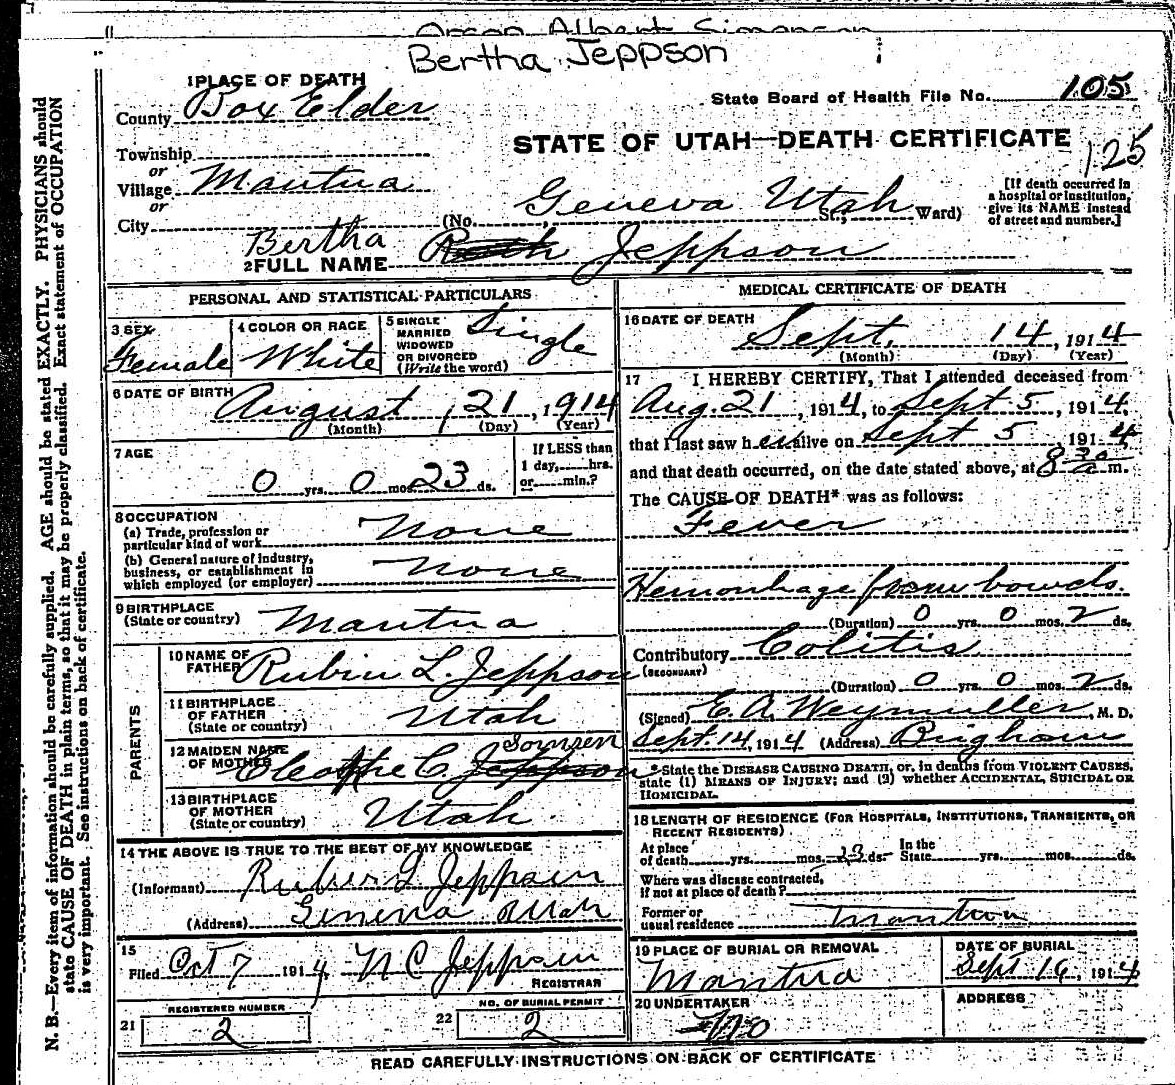 Bertha Jeppson
1 PLACE OF DEATH
County Box Elder
State Board of Health File No. 105
STATE OF UTAH—DEATH CERTIFICATE
125
Township
or
Village Mantua
or
City (No. Geneva Utah St; Ward)
[If death occurred in
a hospital or institution,
give its NAME instead
of street and number.]
2 FULL NAME Bertha Jeppson
PERSONAL AND STATISTICAL PARTICULARS
3 SEX
Female
4 COLOR OR RACE
White
5 SINGLE
MARRIED
WIDOWED
OR DIVORCED
(Write the word)
Single
6 DATE OF BIRTH August 21, 1914
(Month) (Day) (Year)
7 AGE
0 yrs. 0 mos. 23 ds.
If LESS than
1 day, hrs.
or min.?
8 OCCUPATION
(a) Trade, profession or
particular kind of work None
(b) General nature of industry,
business, or establishment in
which employed (or employer) None
9 BIRTHPLACE
(State or country) Mantua
PARENTS
10 NAME OF
FATHER Rubin L. Jeppson
11 BIRTHPLACE
OF FATHER
(State or country) Utah
12 MAIDEN NAME
OF MOTHER C. Jeppson
13 BIRTHPLACE
OF MOTHER
(State or country) Utah.
14 THE ABOVE IS TRUE TO THE BEST OF MY KNOWLEDGE
(Informant) Jeppson
(Address)
15
Filed Oct 7 1914, N C Jeppson
REGISTRAR
21 REGISTERED NUMBER
2
22 NO. OF BURIAL PERMIT
2
MEDICAL CERTIFICATE OF DEATH
16 DATE OF DEATH
Sept. 14, 1914
(Month) (Day) (Year)
17 I HEREBY CERTIFY, That I attended deceased from
Aug. 21, 1914, to Sept 5, 1914,
that I last saw her alive on Sept 5, 1914
and that death occurred, on the date stated above, at 8 30 a m.
The CAUSE OF DEATH* was as follows:
Fever
Hemorrhage from bowels.
(Duration) 0 yrs. 0 mos. 2 ds.
Contributory Colitis
(SECONDARY)
(Duration) 0 yrs. 0 mos. 2 ds.
(Signed) E. A. Weymuller, M. D.
Sept. 14, 1914 (Address) Brigham
*State the DISEASE CAUSING DEATH, or, in deaths from VIOLENT CAUSES,
state (1) MEANS OF INJURY; and (2) whether ACCIDENTAL, SUICIDAL OR
HOMICIDAL.
18 LENGTH OF RESIDENCE (FOR HOSPITALS, INSTITUTIONS, TRANSIENTS, OR
RECENT RESIDENTS)
At place
of death yrs. mos. ds. In the State yrs. mos. ds.
Where was disease contracted,
if not at place of death?
Former or
usual residence
19 PLACE OF BURIAL OR REMOVAL
Mantua
DATE OF BURIAL
Sept 16, 1914
20 UNDERTAKER
No
ADDRESS
READ CAREFULLY INSTRUCTIONS ON BACK OF CERTIFICATE
N. B.—Every item of information should be carefully supplied. AGE should be stated EXACTLY. PHYSICIANS should
state CAUSE OF DEATH in plain terms, so that it may be properly classified. Exact statement of OCCUPATION
is very important. See instructions on back of certificate.